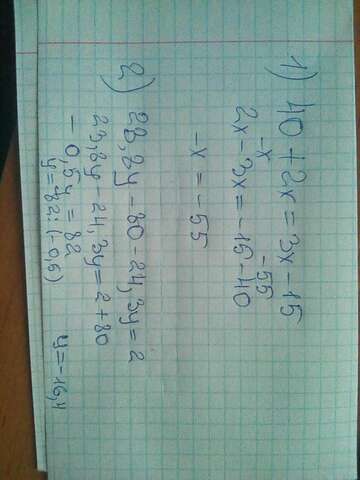 1) 40 + 2x = 3x - 15
-x -55
2x - 3x = -15 - 40
-x = -55
2) 23,8y - 80 - 24,3y = 2
23,8y - 24,3y = 2 + 80
- 0,5y = 82
y = 82 : (-0,5)
y = -16,4